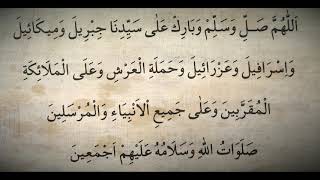 اَللّٰهُمَّ صَلِّ وَسَلِّمْ وَبَارِكْ عَلٰى سَيِّدِنَا جِبْرِيلَ وَمِيكَائِيلَ
وَإِسْرَافِيلَ وَعَزْرَائِيلَ وَحَمَلَةِ الْعَرْشِ وَعَلَى الْمَلَائِكَةِ
الْمُقَرَّبِينَ وَعَلٰى جَمِيعِ الْاَنْبِيَاءِ وَالْمُرْسَلِينَ
صَلَوَاتُ اللّٰهِ وَسَلَامُهُ عَلَيْهِمْ اَجْمَعِينَ